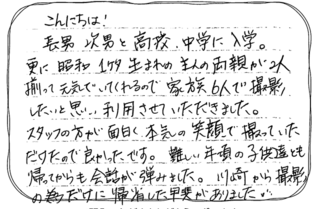 こんにちは!
長男 次男と高校、中学に入学。
更に昭和17年生まれの主人の両親が2人
揃って元気でいてくれるので家族6人で撮影
したいと思い利用させていただきました。
スタッフの方が面白く本気の笑顔で撮っていた
だけたので良かったです。難しい年頃の子供達とも
帰ってからも会話が弾みました。川崎から撮影
の為だけに帰省した甲斐がありました